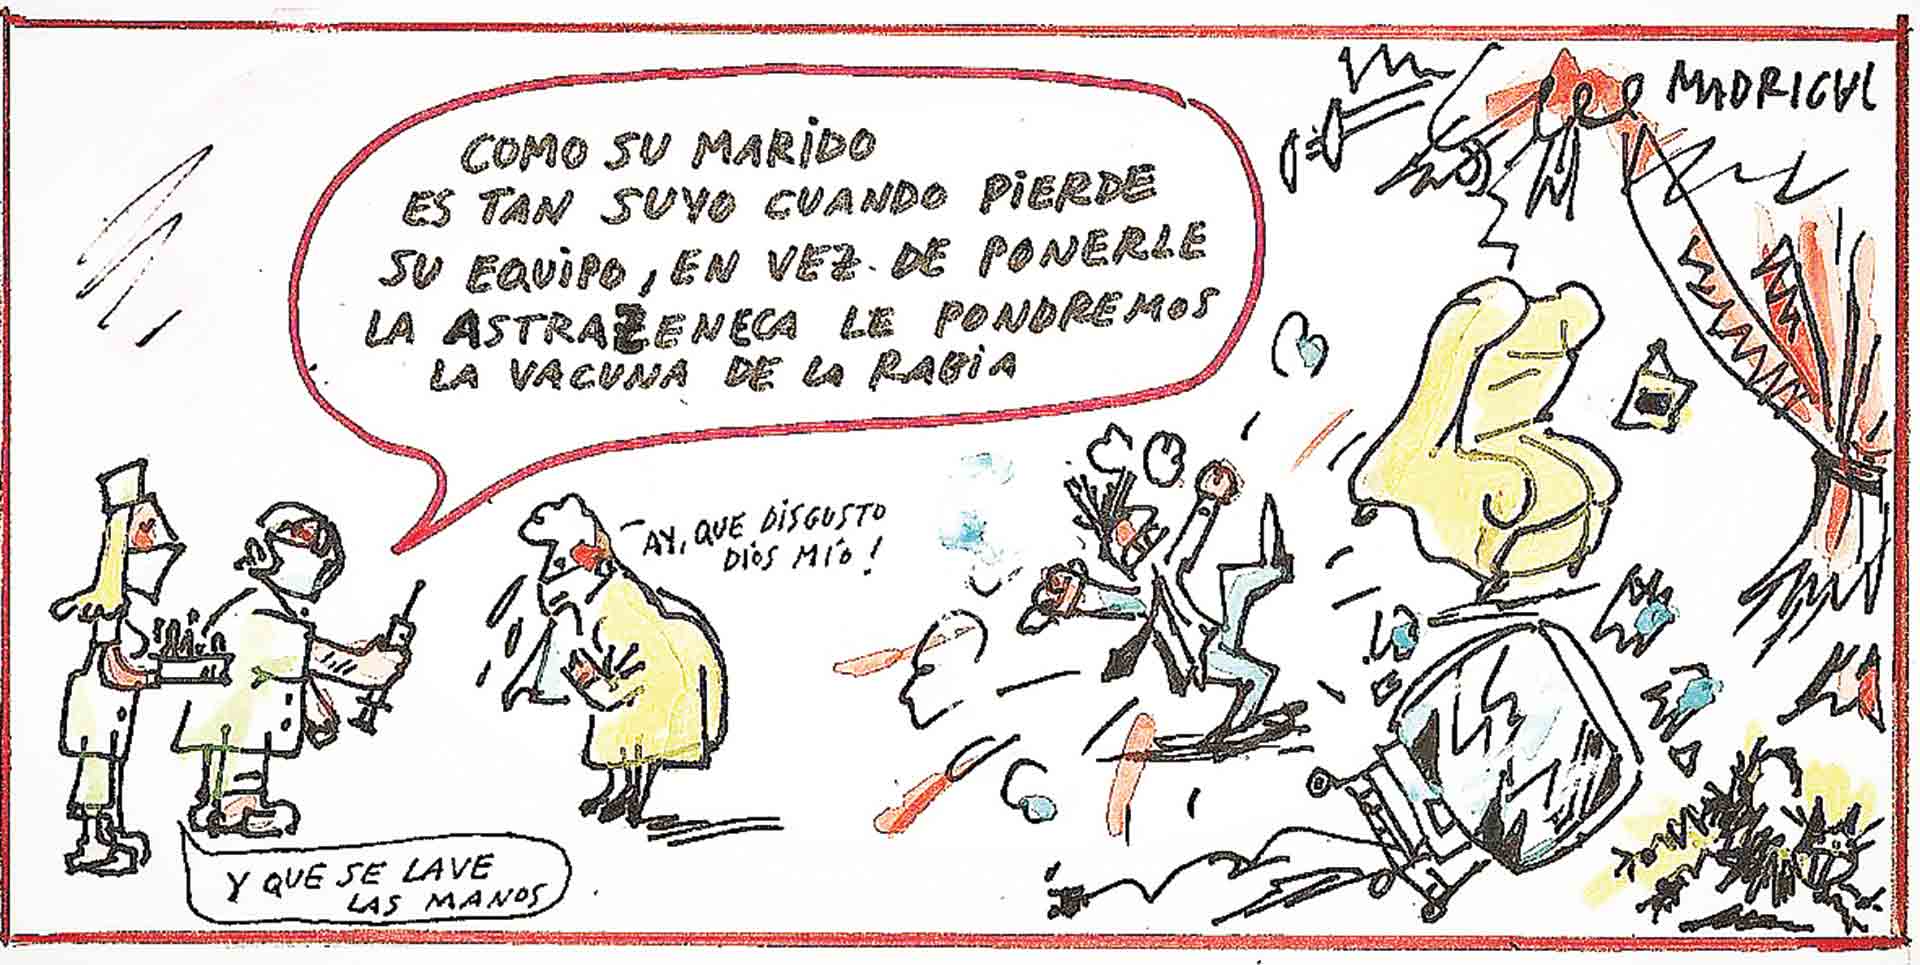 COMO SU MARIDO
ES TAN SUYO CUANDO PIERDE
SU EQUIPO, EN VEZ DE PONERLE
LA ASTRAZENECA LE PONDREMOS
LA VACUNA DE LA RABIA
MADRIGAL
AY, QUE DISGUSTO
DIOS MÍO!
Y QUE SE LAVE
LAS MANOS